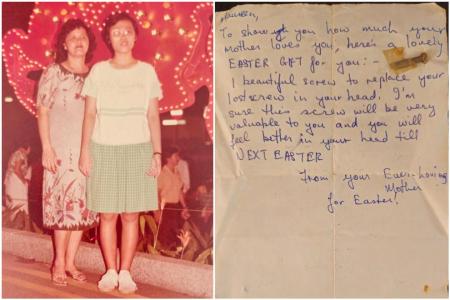 Maureen,
To show you how much your
Mother loves you, here's a lovely
EASTER GIFT for you: -
1 beautiful screw to replace your
lost screw in your head. I'm
sure this screw will be very
valuable to you and you will
feel better in your head till
NEXT EASTER
From your Ever-loving
Mother
for Easter!